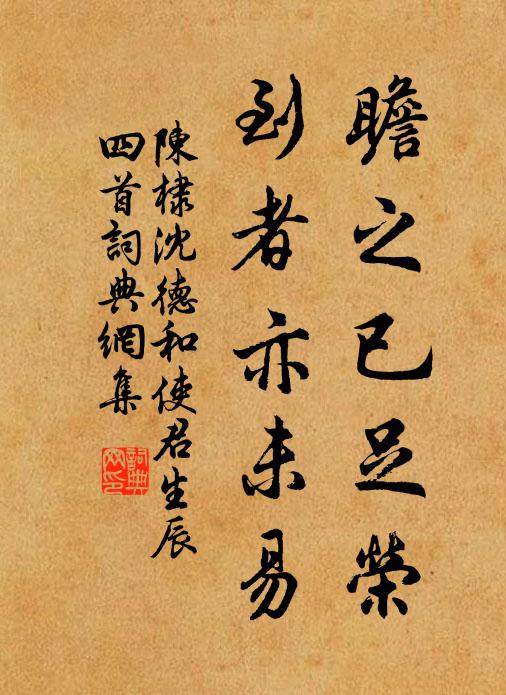 瞻之已足榮
到者亦未易
陳棣沈德和使君生辰
四首詞典網集
詞典網印